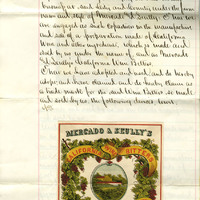 business, and duly and honestly under the firm
name and style of Mercado & Seully & Has we
are engaged as such copartners in the manufacture
and sale of a preparation made of California
Wine and other ingredients, which is made and
sold by us under the name of and as Mercado
& Seully's California Wine Bitters.
That we have adopted and used and do hereby
adopt and have claimed and do hereby claim as
a trade mark for the said Wine Bitters so made
and sold by us, the following device to wit
MERCADO & SEULLY'S
CALIFORNIA WINE BITTERS